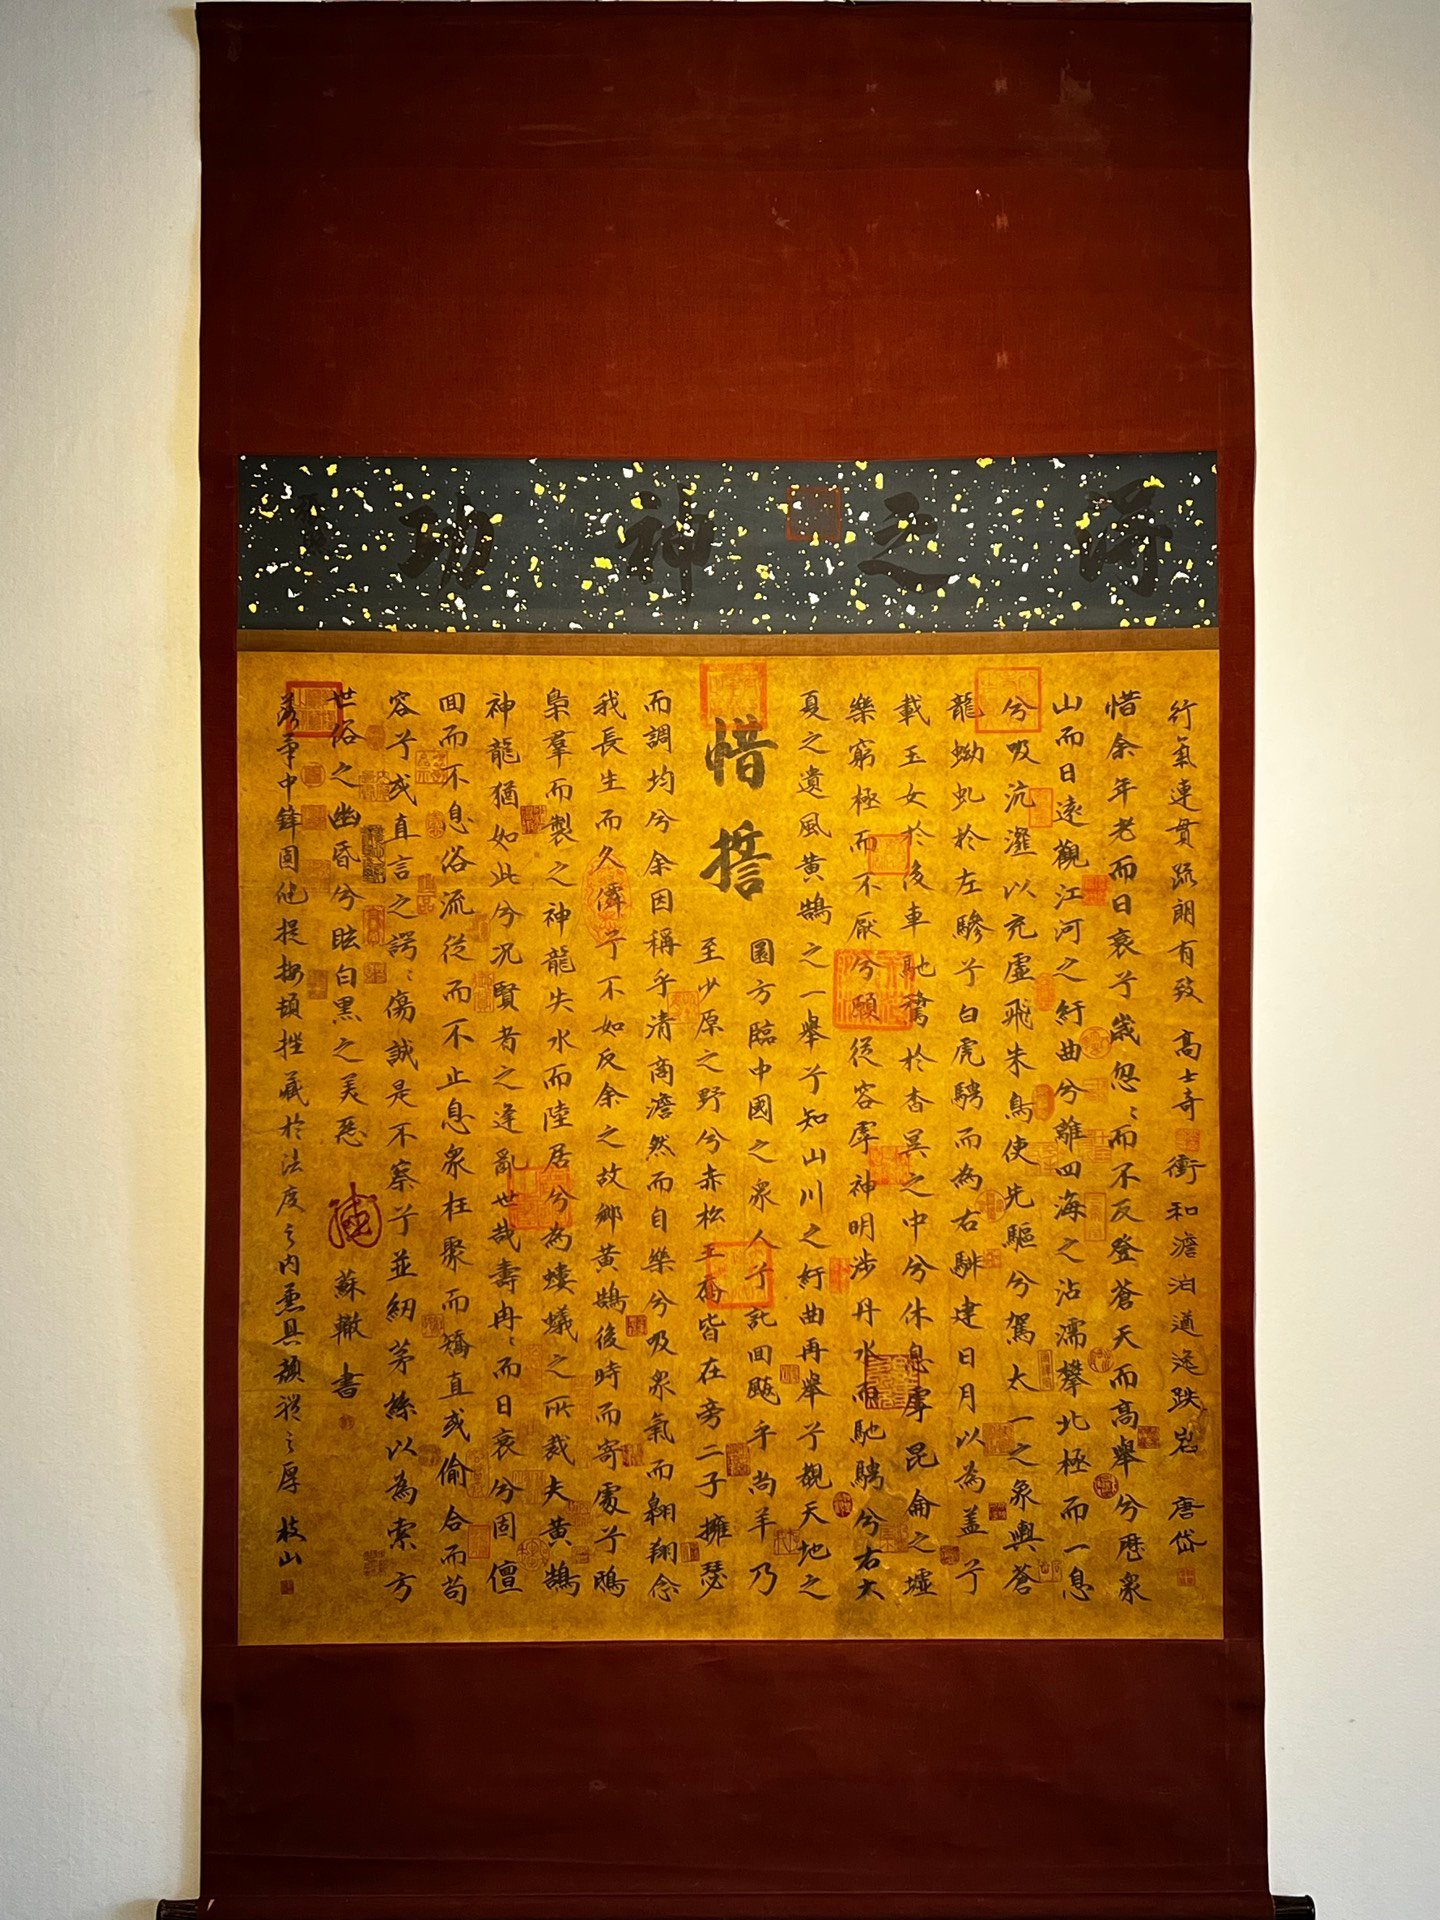 得之神功
行氣連貫疏朗有致 高士奇 衝和澹泊遒逸跌宕 唐岱
惜余年老而日衰兮歲忽〻而不反登蒼天而高舉兮歷衆
山而日遠觀江河之紆曲兮離四海之沾濡攀北極而一息
兮吸沆瀣以充虛飛朱鳥使先驅兮駕太一之象輿蒼
龍蚴虬於左驂兮白虎騁而為右騑建日月以為蓋兮
載玉女於後車馳騖於杳冥之中兮休息虖昆侖之墟
樂窮極而不厭兮願從容虖神明涉丹水而馳騁兮右大
夏之遺風黃鵠之一舉兮知山川之紆曲再舉兮觀天地之
惜誓
圜方臨中國之衆人兮託回飈乎尚羊乃
至少原之野兮赤松王喬皆在旁二子擁瑟
而調均兮余因稱乎清商澹然而自樂兮吸衆氣而翱翔念
我長生而久僊兮不如反余之故鄉黃鵠後時而寄處兮鴟
梟羣而製之神龍失水而陸居兮為螻蟻之所裁夫黃鵠
神龍猶如此兮況賢者之逢亂世哉壽冉〻而日衰兮固儃
回而不息俗流從而不止息衆枉聚而矯直或偷合而苟
容兮或直言之諤〻傷誠是不察兮並紉茅絲以為索方
世俗之幽昏兮眩白黑之美惡 蘇轍書
落筆中鋒圓 提按頓挫藏於法度之內 具顏 之厚 枝山